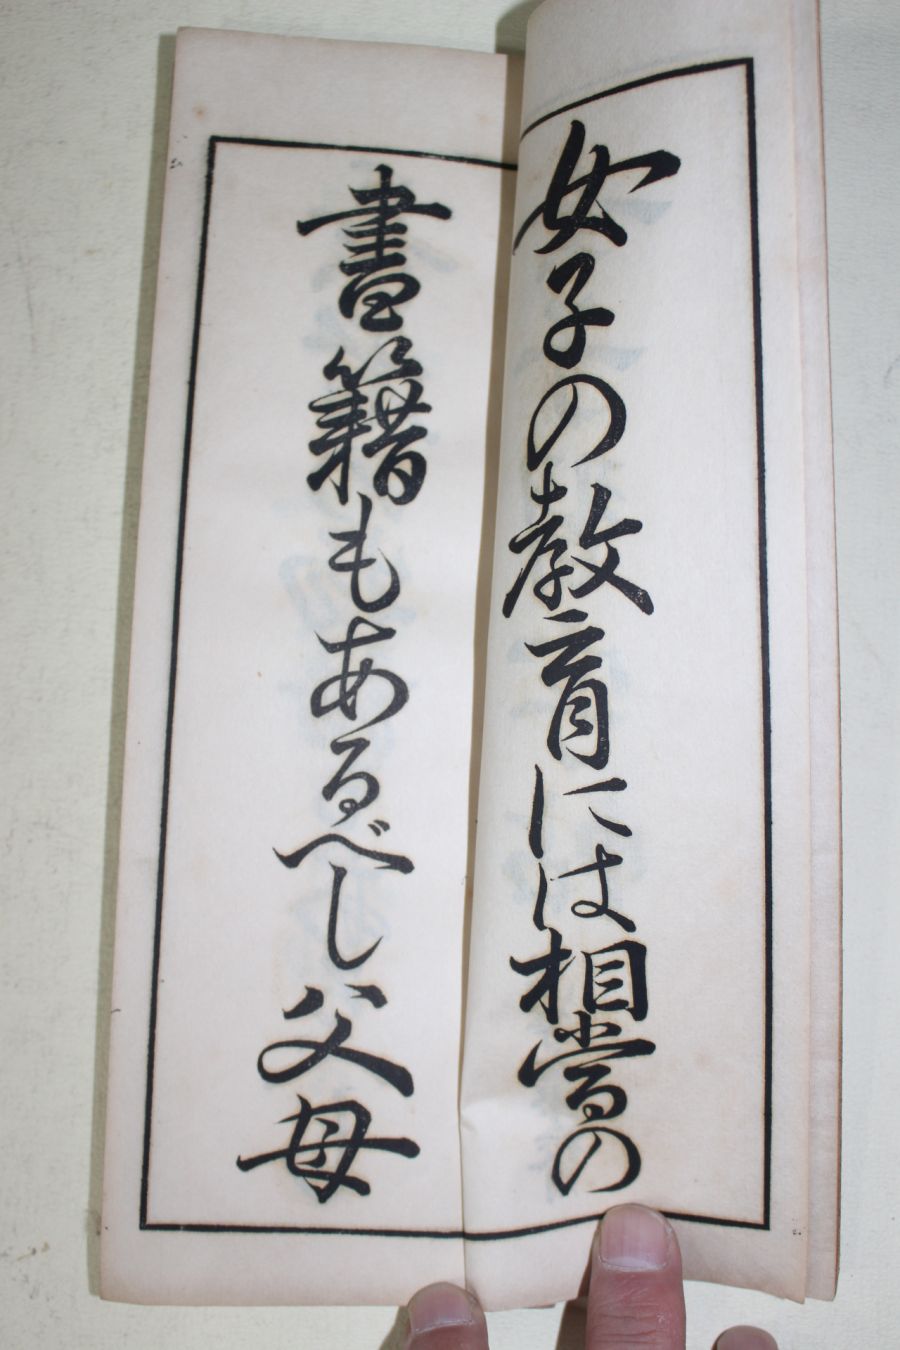 女子の教育には相當の
書籍もあるべし父母